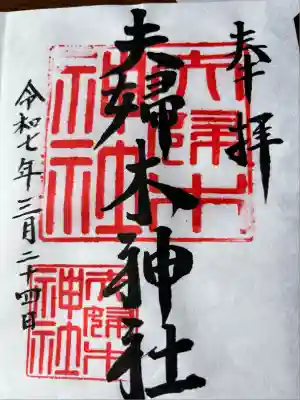 奉拝
夫婦木神社
令和七年三月二十四日
夫婦木神社
夫婦木神社